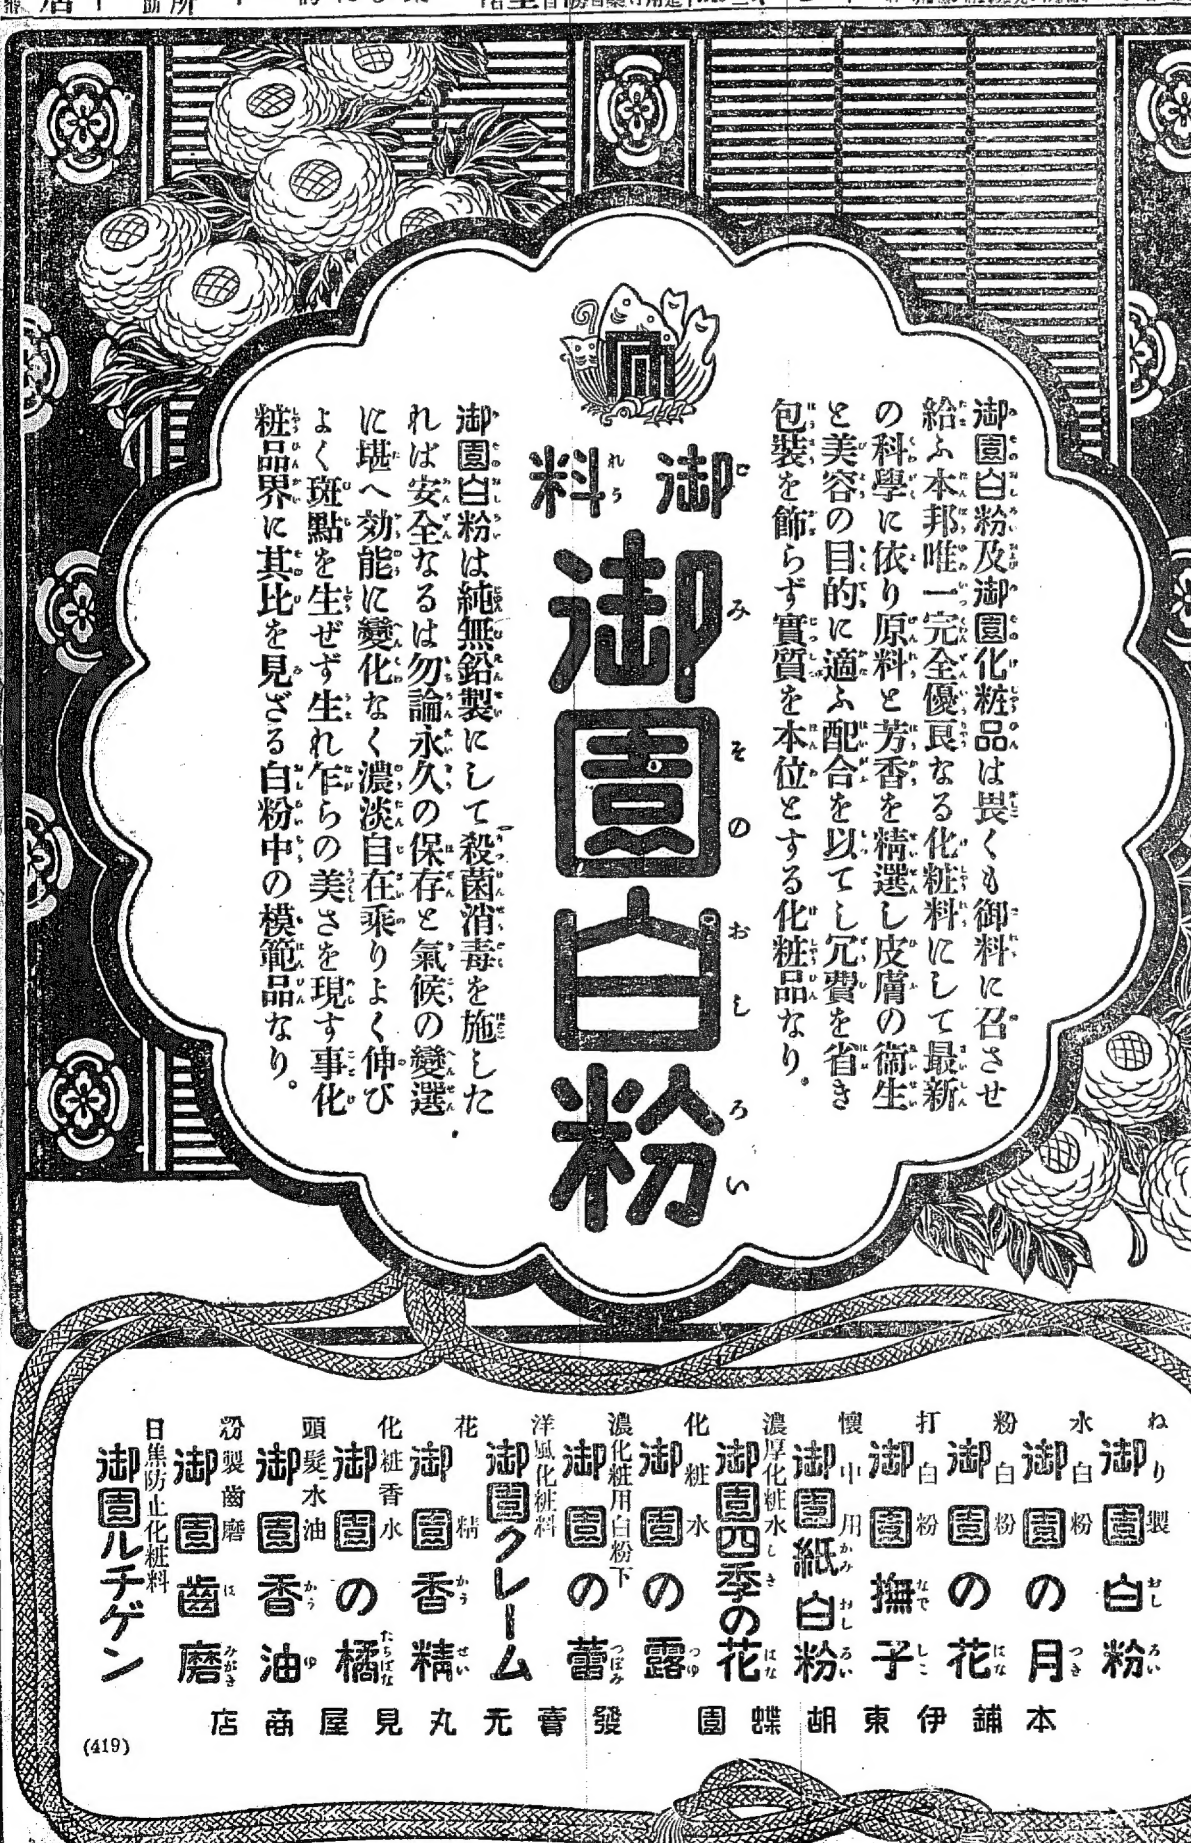 御料
御園白粉
御園白粉及御園化粧品は畏くも御料に召させ
給ふ本邦唯一完全優良なる化粧料にして最新
の科學に依り原料と芳香を精選し皮膚の衞生
と美容の目的に適ふ配合を以てし冗費を省き
包裝を飾らず實質を本位とする化粧品なり。
御園白粉は純無鉛製にして殺菌消毒を施した
れば安全なるは勿論永久の保存と氣候の變遷
に堪へ効能に變化なく濃淡自在乘りよく伸び
よく斑點を生ぜず生れ乍らの美さを現す事化
粧品界に其比を見ざる白粉中の模範品なり。
ねり製 御園白粉
水白粉 御園の月
粉白粉 御園の花
打白粉 御園撫子
懷中用 御園紙白粉
濃厚化粧水 御園四季の花
化粧水 御園の露
濃化粧用白粉下 御園の蕾
洋風化粧料 御園クレーム
花精 御園香精
化粧香水 御園の橘
頭髮水油 御園香油
粉製齒磨 御園齒磨
日焦防止化粧料 御園ルチゲン
本舖伊東胡蝶園 發賣元丸見屋商店
(419)